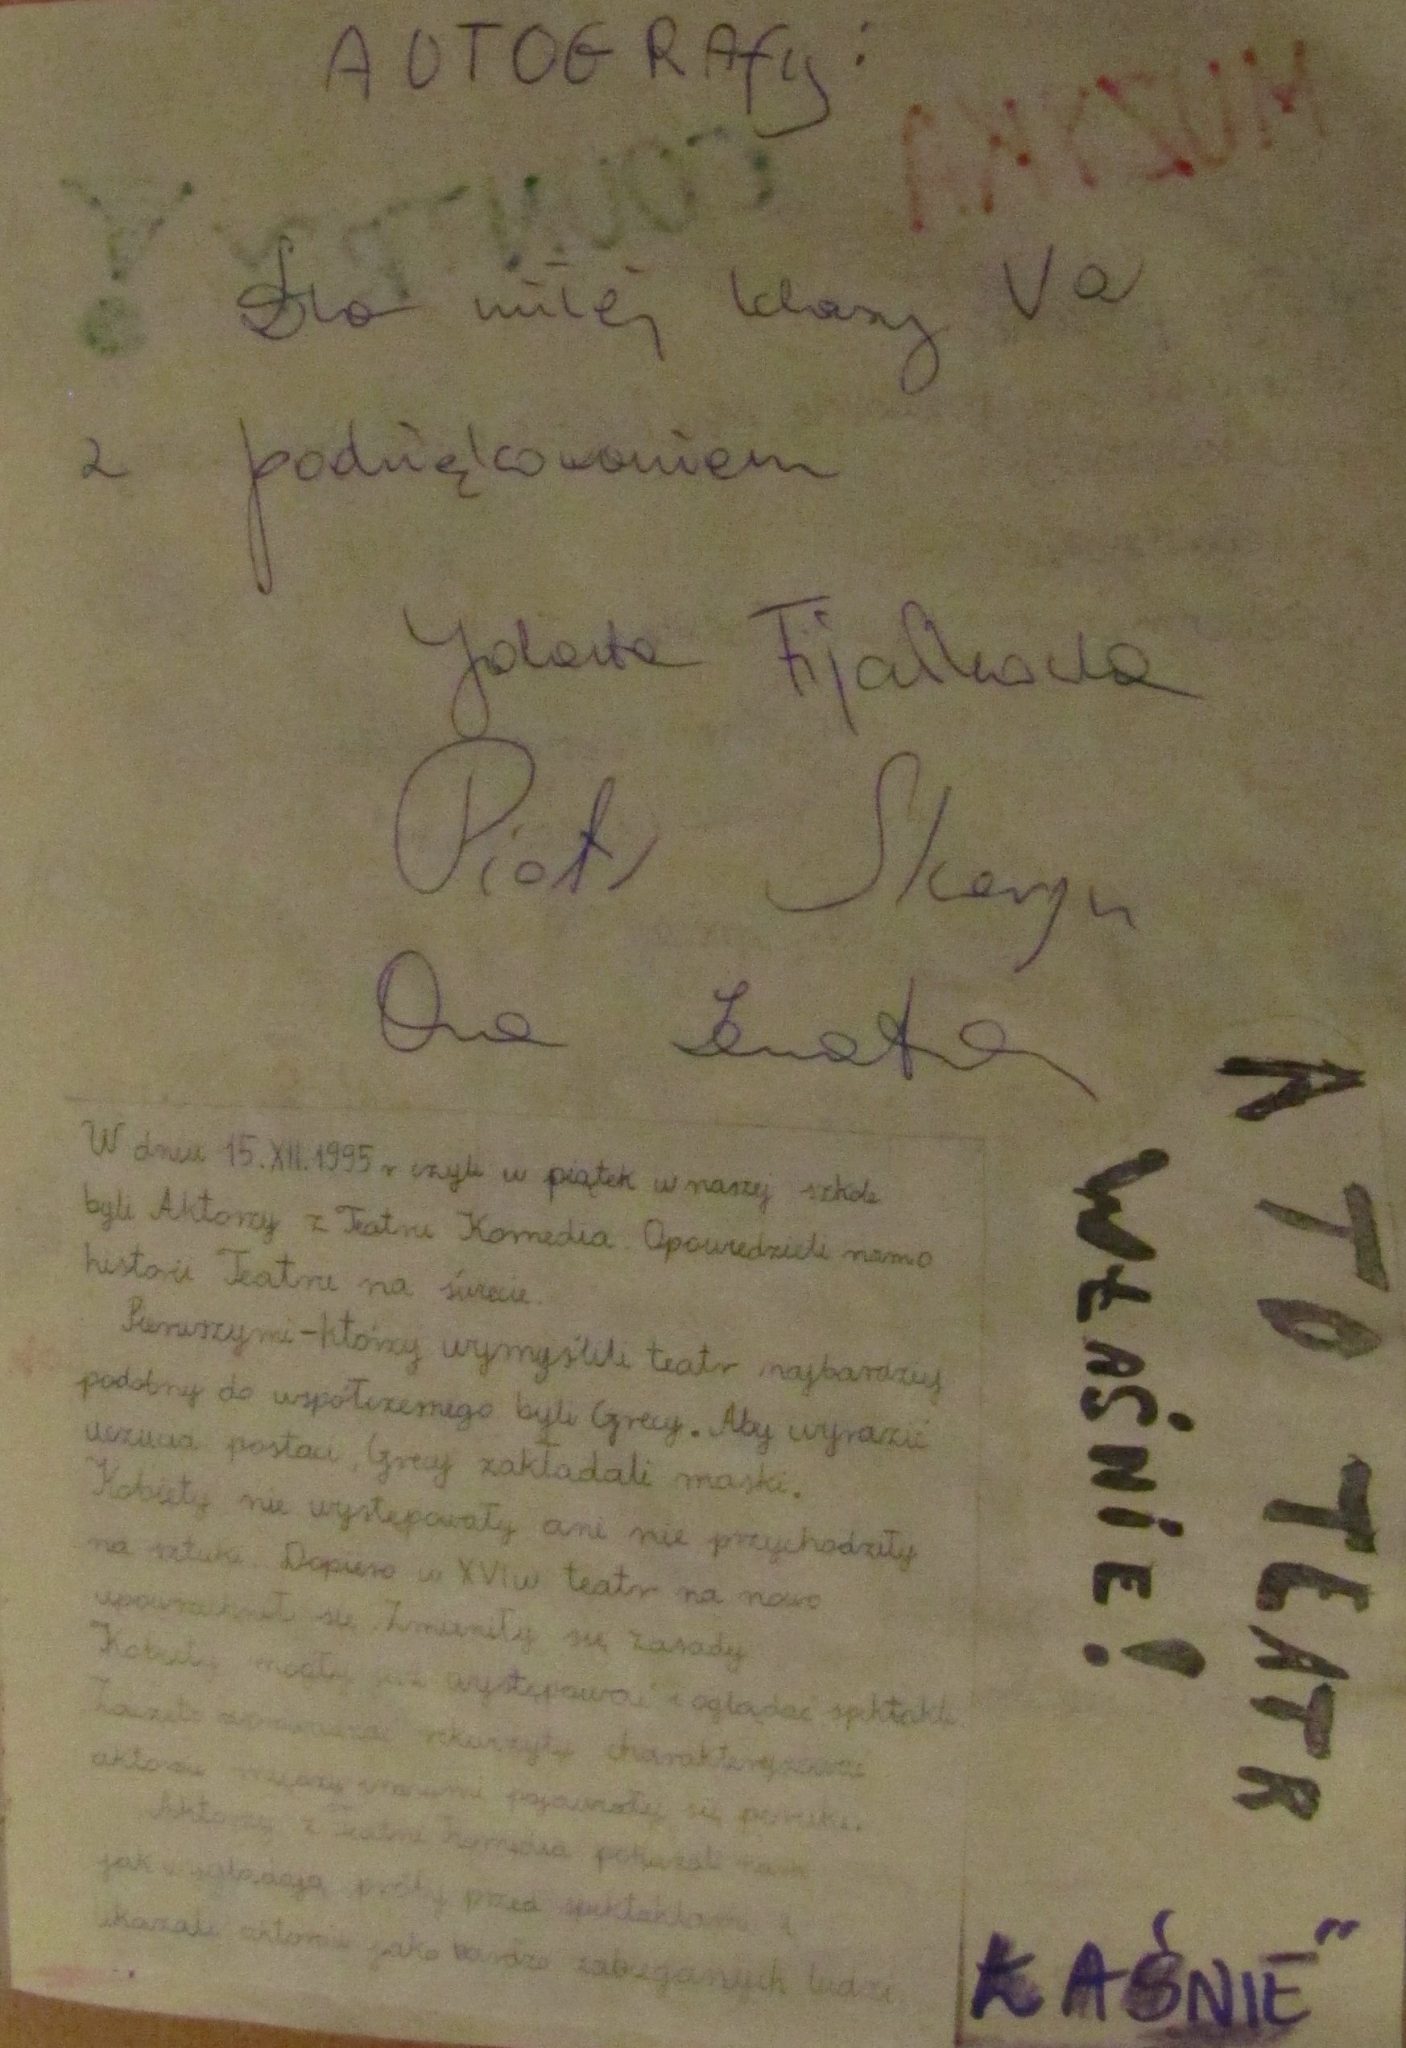 AUTOGRAfy:
MUZYKA
COUNTRY
Dla miłej klasy Va
z podziękowaniem
Jolanta Fijałkowska
Piotr Skarga
W dniu 15.XII.1995r czyli w piątek w naszej szkole
byli Aktorzy z Teatru Komedia. Opowiedzieli nam o
historii Teatru na świecie.
Pierwszymi-którzy wymyślili teatr najbardziej
podobny do współczesnego byli Grecy. Aby wyrazić
uczucia postaci, Grecy zakładali maski.
Kobiety nie występowały ani nie przychodziły
na sztuki. Dopiero w XVIw teatr na nowo
upowszechnił się. Zmieniły się zasady
Kobiety mogły już występować i oglądać spektakle.
Zaczęto charakteryzować
aktorów między innymi pojawiały się peruki.
Aktorzy z Teatru Komedia pokazali nam
jak wyglądają próby przed spektaklami i
ukazali aktorów jako bardzo zabieganych ludzi
A TO TEATR
WŁAŚNIE!
ŁAŚNIE"